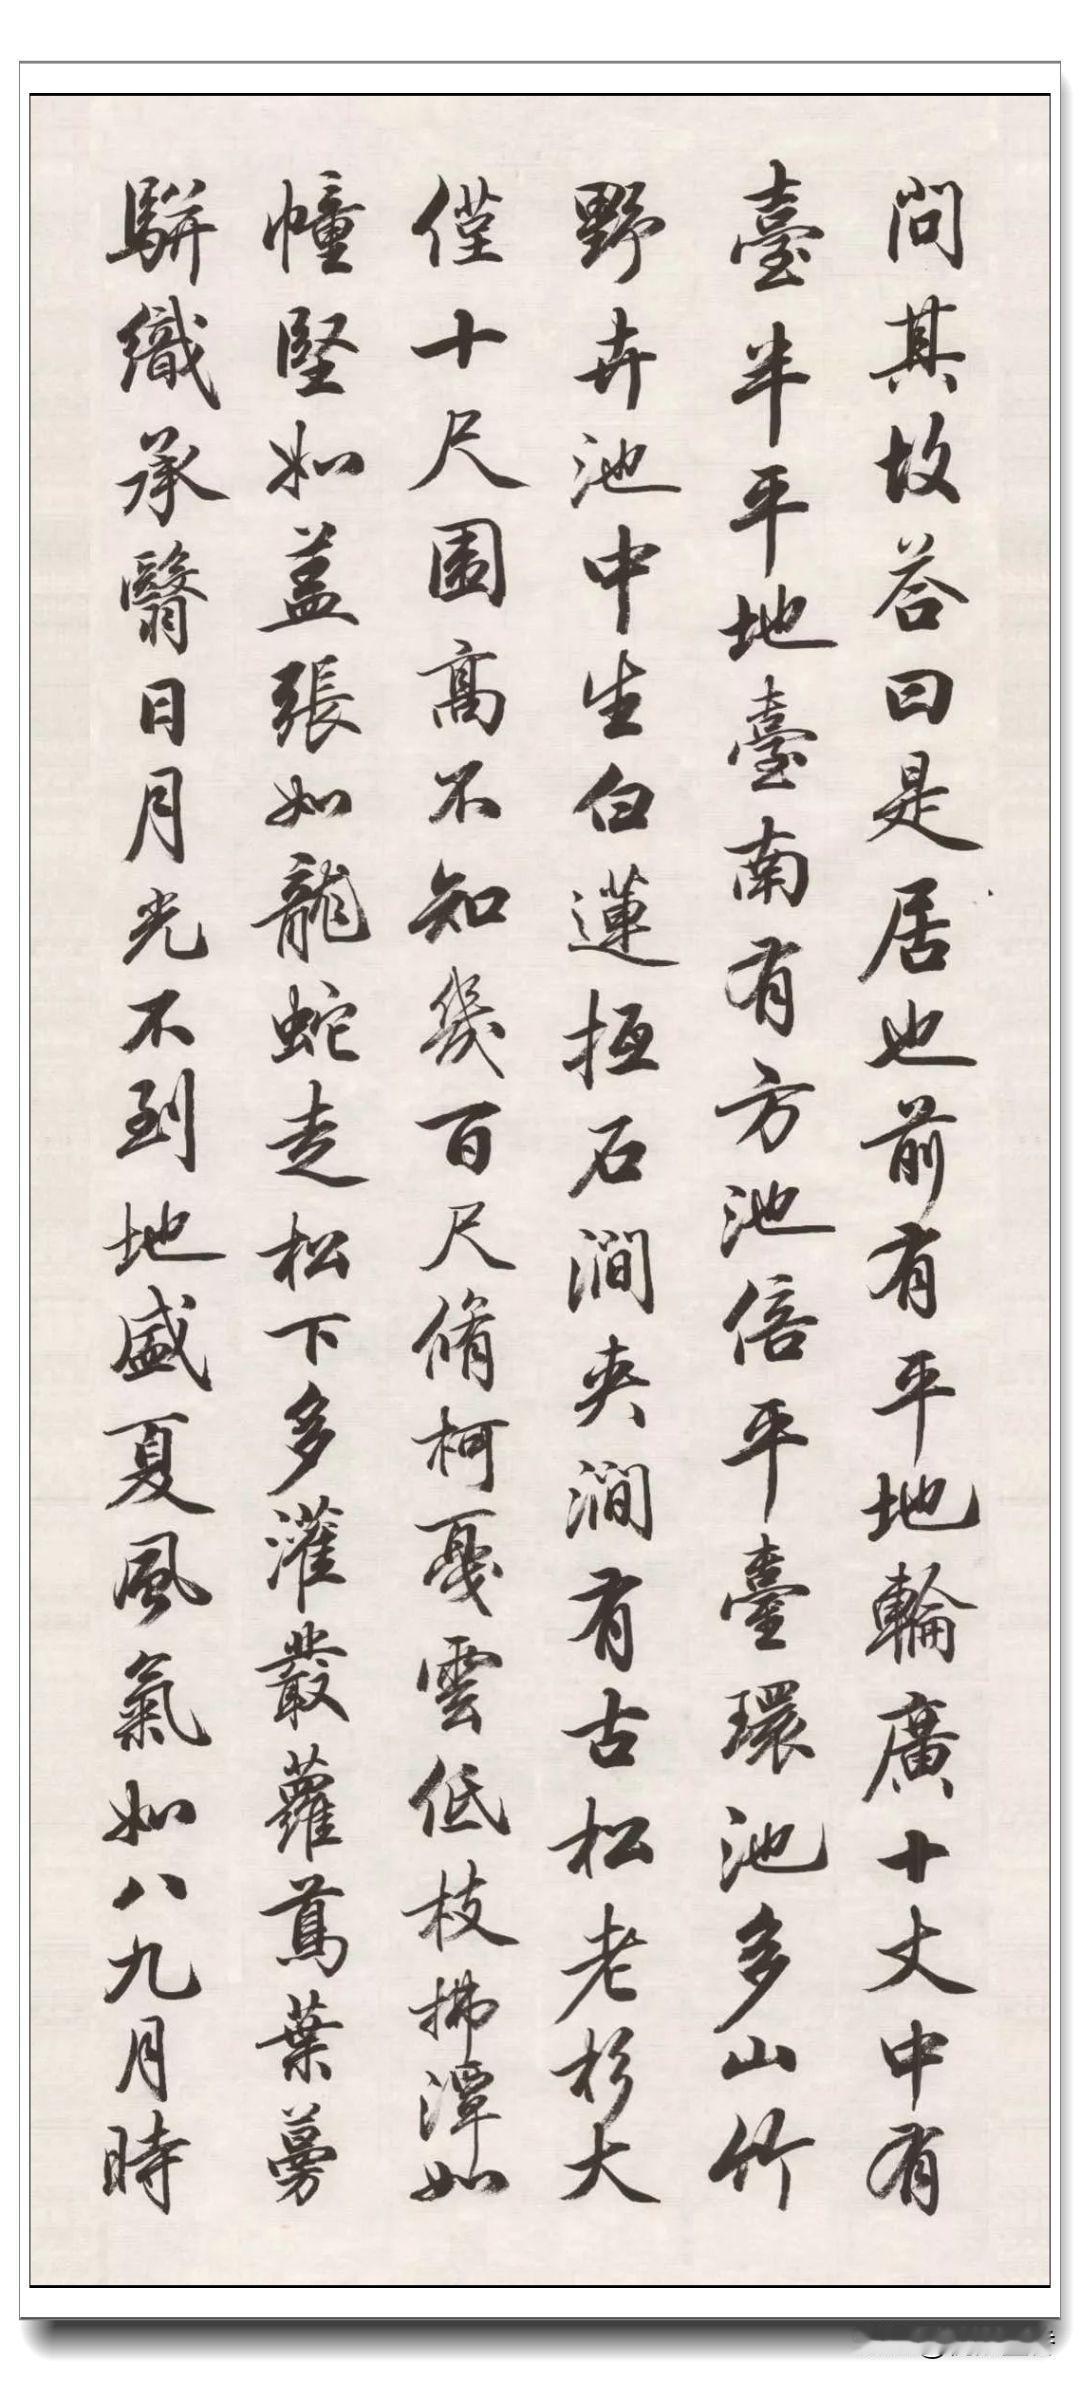 問其故答曰是居也前有平地輪廣十丈中有
臺半平地臺南有方池倍平臺環池多山竹
野卉池中生白蓮抵石澗夾澗有古松老杉大
僅十尺圍高不知幾百尺脩柯戛雲低枝拂潭如
幢竪如盖張如龍蛇走松下多灌叢蘿蔦葉蔓
駢織承翳日月光不到地盛夏風氣如八九月時